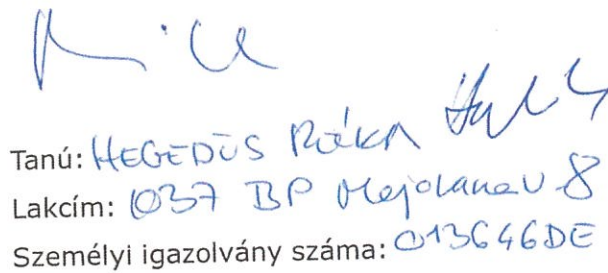 Tanú: HEGEDŰS RÉKA
Lakcím: 1037 BP 8
Személyi igazolvány száma: 013646DE